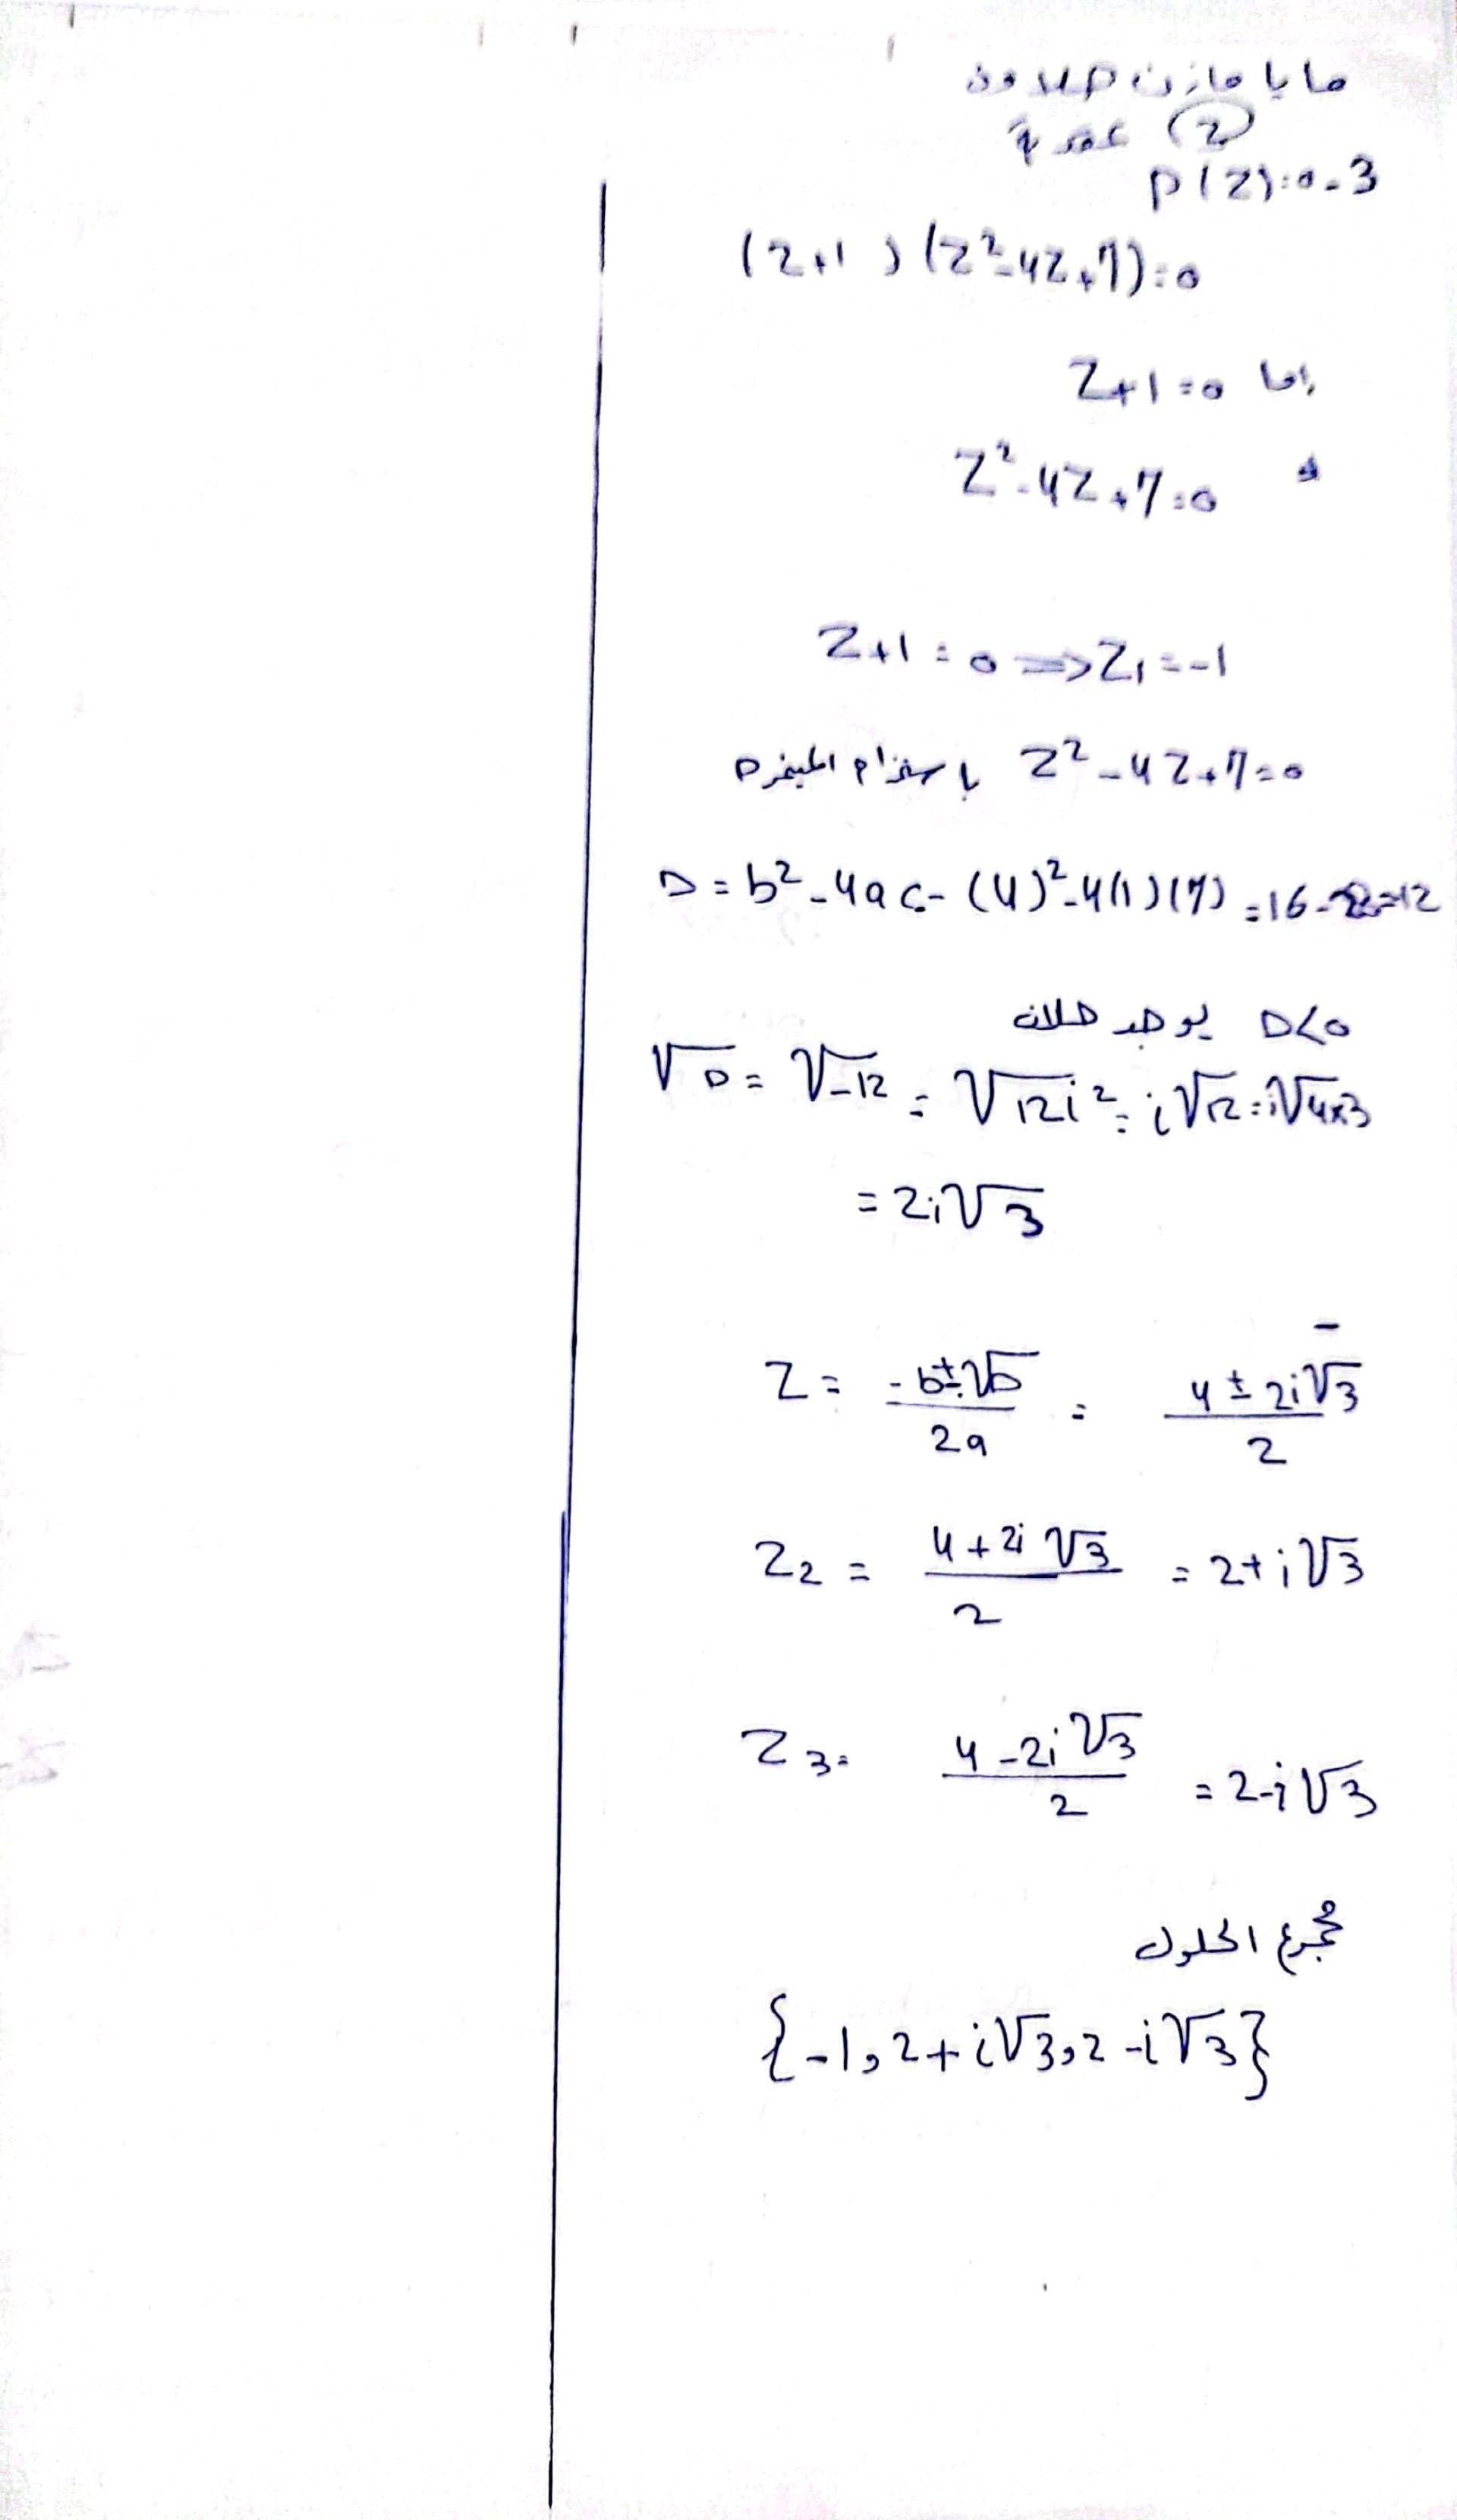 مايا مازن حمدون
2
P(Z)=0-3
(Z+1)(Z²-4Z+7)=0
إما Z+1=0
Z²-4Z+7=0
Z+1=0 ⟹ Z₁=-1
Z²-4Z+7=0 باستخدام المميز
D=b²-4ac-(4)²-4(1)(7)=16-28=-12
D<0 يوجد حلان
√D=√-12=√12i²=i√12=i√4×3
=2i√3
Z=-b±√D/2a=4±2i√3/2
Z₂=4+2i√3/2=2+i√3
Z₃=4-2i√3/2=2-i√3
مجموع الحلول
{-1,2+i√3,2-i√3}